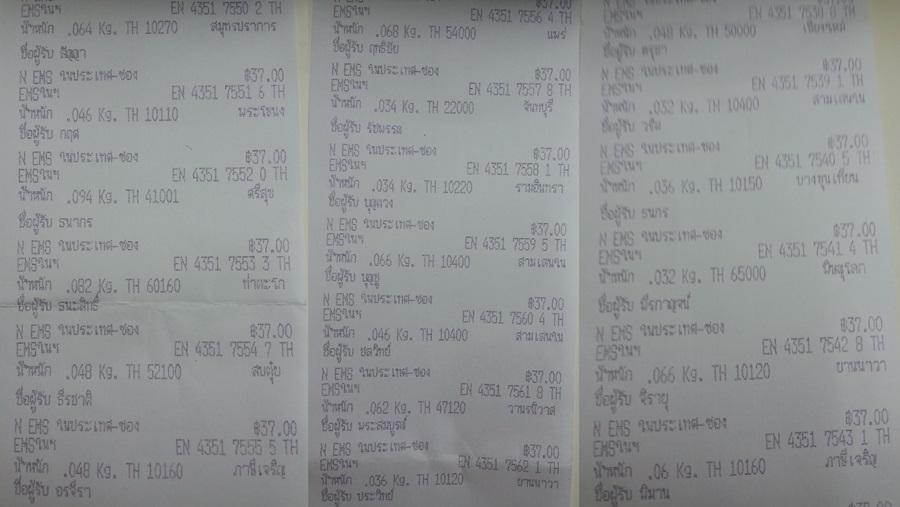 EMSในฯ EN 4351 7550 2 TH
น้ำหนัก .064 Kg. TH 10270 สมุทรปราการ
ชื่อผู้รับ สัญญา
N EMS ในประเทศ-ซอง ฿37.00
EMSในฯ EN 4351 7551 6 TH
น้ำหนัก .046 Kg. TH 10110 พระโขนง
ชื่อผู้รับ กฤศ
N EMS ในประเทศ-ซอง ฿37.00
EMSในฯ EN 4351 7552 0 TH
น้ำหนัก .094 Kg. TH 41001 ศรีสุข
ชื่อผู้รับ ธนากร
N EMS ในประเทศ-ซอง ฿37.00
EMSในฯ EN 4351 7553 3 TH
น้ำหนัก .082 Kg. TH 60160 ท่าตะโก
ชื่อผู้รับ ธนะสิทธิ์
N EMS ในประเทศ-ซอง ฿37.00
EMSในฯ EN 4351 7554 7 TH
น้ำหนัก .048 Kg. TH 52100 สบตุ๋ย
ชื่อผู้รับ ธีรชาติ
N EMS ในประเทศ-ซอง ฿37.00
EMSในฯ EN 4351 7555 5 TH
น้ำหนัก .048 Kg. TH 10160 ภาษีเจริญ
ชื่อผู้รับ อรจิรา
฿37.00
EMSในฯ EN 4351 7556 4 TH
น้ำหนัก .068 Kg. TH 54000 แพร่
ชื่อผู้รับ ฤทธิชัย
N EMS ในประเทศ-ซอง ฿37.00
EMSในฯ EN 4351 7557 8 TH
น้ำหนัก .034 Kg. TH 22000 จันทบุรี
ชื่อผู้รับ รัชพรรษ
N EMS ในประเทศ-ซอง ฿37.00
EMSในฯ EN 4351 7558 1 TH
น้ำหนัก .034 Kg. TH 10220 รามอินทรา
ชื่อผู้รับ บุญดวง
N EMS ในประเทศ-ซอง ฿37.00
EMSในฯ EN 4351 7559 5 TH
น้ำหนัก .066 Kg. TH 10400 สามเสนใน
ชื่อผู้รับ บุญชู
N EMS ในประเทศ-ซอง ฿37.00
EMSในฯ EN 4351 7560 4 TH
น้ำหนัก .046 Kg. TH 10400 สามเสนใน
ชื่อผู้รับ ชลวิทย์
N EMS ในประเทศ-ซอง ฿37.00
EMSในฯ EN 4351 7561 8 TH
น้ำหนัก .062 Kg. TH 47120 วานรนิวาส
ชื่อผู้รับ พระสมบูรณ์
N EMS ในประเทศ-ซอง ฿37.00
EMSในฯ EN 4351 7562 1 TH
น้ำหนัก .036 Kg. TH 10120 ยานนาวา
ชื่อผู้รับ ประวิทย์
EMSในฯ EN 4351 7530 0 TH
น้ำหนัก .048 Kg. TH 50000 เชียงใหม่
ชื่อผู้รับ ดรุชา
N EMS ในประเทศ-ซอง ฿37.00
EMSในฯ EN 4351 7539 1 TH
น้ำหนัก .032 Kg. TH 10400 สามเสนใน
ชื่อผู้รับ วริษ
N EMS ในประเทศ-ซอง ฿37.00
EMSในฯ EN 4351 7540 5 TH
น้ำหนัก .036 Kg. TH 10150 บางขุนเทียน
ชื่อผู้รับ ธนกร
N EMS ในประเทศ-ซอง ฿37.00
EMSในฯ EN 4351 7541 4 TH
น้ำหนัก .032 Kg. TH 65000 พิษณุโลก
ชื่อผู้รับ พีรกาญจน์
N EMS ในประเทศ-ซอง ฿37.00
EMSในฯ EN 4351 7542 8 TH
น้ำหนัก .066 Kg. TH 10120 ยานนาวา
ชื่อผู้รับ จิรายุ
N EMS ในประเทศ-ซอง ฿37.00
EMSในฯ EN 4351 7543 1 TH
น้ำหนัก .06 Kg. TH 10160 ภาษีเจริญ
ชื่อผู้รับ พิมาน